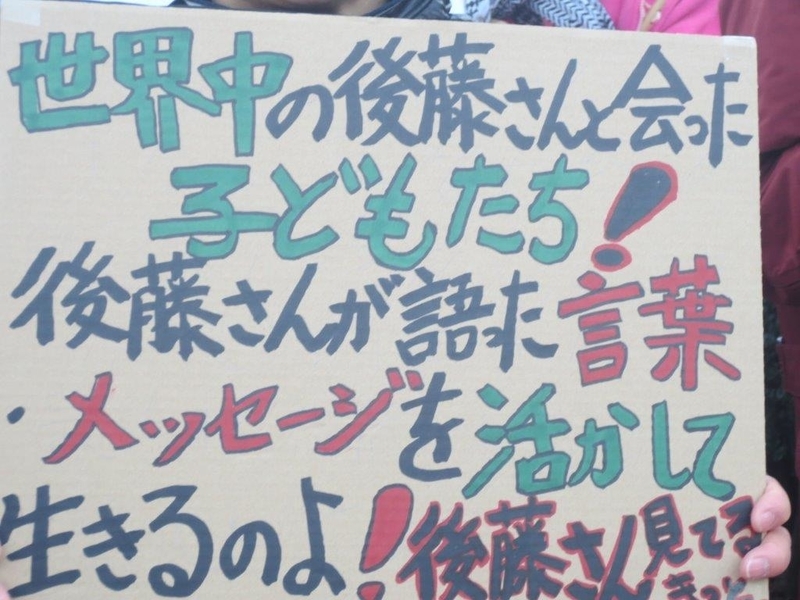 世界中の後藤さんと会った
子どもたち!
後藤さんが語った言葉
・メッセージを活かして
生きるのよ!後藤さん見てる
きっと